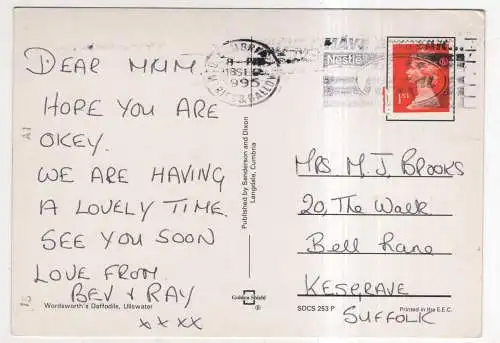 DEAR MUM.
HOPE YOU ARE
OKEY.
WE ARE HAVING
A LOVELY TIME.
SEE YOU SOON
LOVE FROM
BEV + RAY
xxxx
Wordsworth's Daffodils, Ullswater
A1
Published by Sanderson and Dixon
Langdale, Cumbria
Golden Shield
®
Nestlé
1ST
MRS M. J. BROOKS
20, THE WALK
Bell Lane
KESGRAVE
SUFFOLK
SDCS 253 P
Printed in the E.E.C.